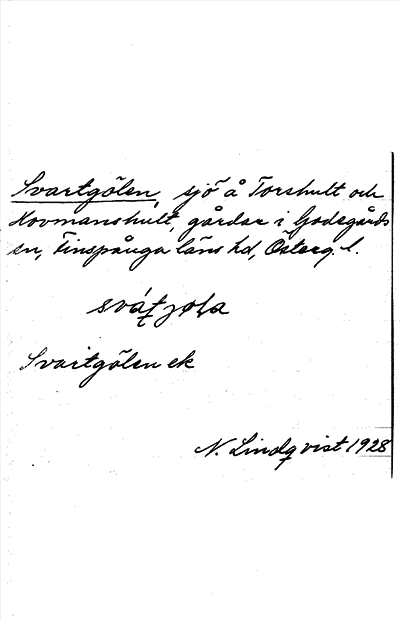 Svartgölen, sjö å Torshult och
Hovmanshult, gårdar i Godegårds
sn, Finspånga läns hd, Österg. l.
Svartgölen ek
N. Lindqvist 1928